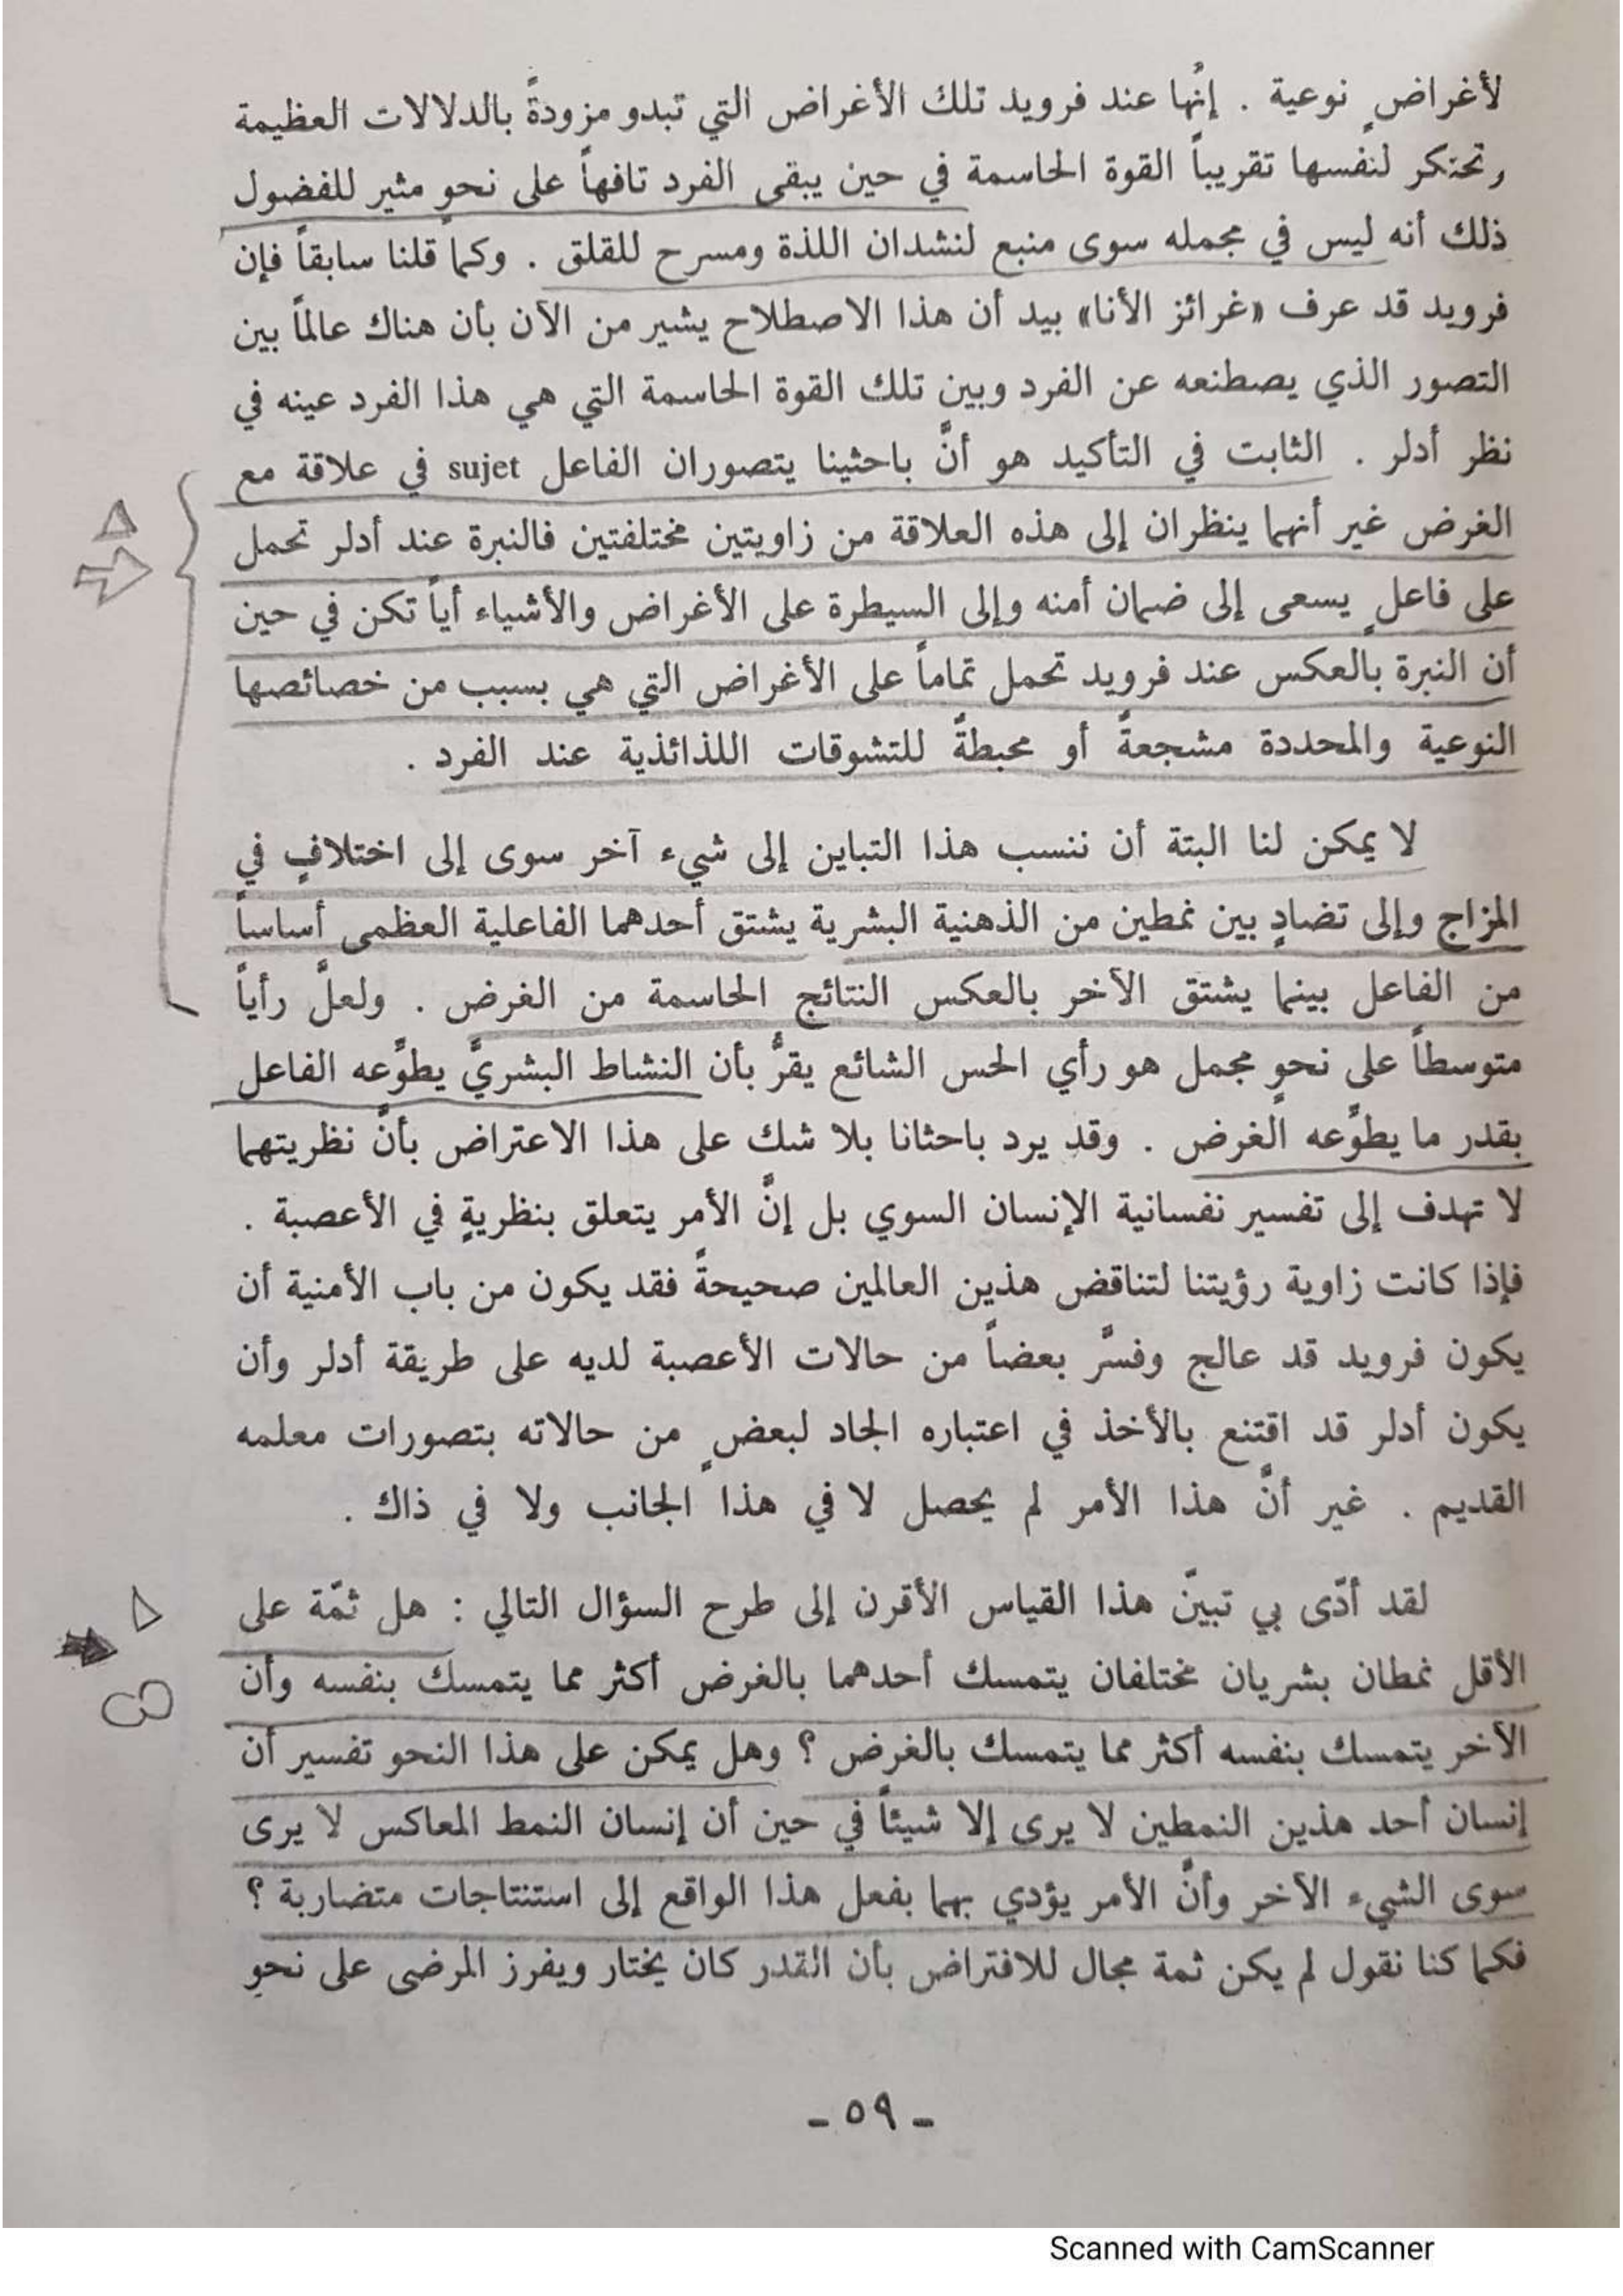 لأغراضٍ نوعية . إنّها عند فرويد تلك الأغراض التي تبدو مزودةً بالدلالات العظيمة
وتحتكر لنفسها تقريباً القوة الحاسمة في حين يبقى الفرد تافهاً على نحوٍ مثير للفضول
ذلك أنه ليس في مجمله سوى منبع لنشدان اللذة ومسرح للقلق . وكما قلنا سابقاً فإن
فرويد قد عرف «غرائز الأنا» بيد أن هذا الاصطلاح يشير من الآن بأن هناك عالماً بين
التصور الذي يصطنعه عن الفرد وبين تلك القوة الحاسمة التي هي هذا الفرد عينه في
نظر أدلر . الثابت في التأكيد هو أنَّ باحثينا يتصوران الفاعل sujet في علاقة مع
الغرض غير أنهما ينظران إلى هذه العلاقة من زاويتين مختلفتين فالنبرة عند أدلر تحمل
على فاعلٍ يسعى إلى ضمان أمنه وإلى السيطرة على الأغراض والأشياء أياً تكن في حين
أن النبرة بالعكس عند فرويد تحمل تماماً على الأغراض التي هي بسبب من خصائصها
النوعية والمحددة مشجعةً أو محبطةً للتشوقات اللذائذية عند الفرد .
لا يمكن لنا البتة أن ننسب هذا التباين إلى شيء آخر سوى إلى اختلافٍ في
المزاج وإلى تضادٍ بين نمطين من الذهنية البشرية يشتق أحدهما الفاعلية العظمى أساساً
من الفاعل بينما يشتق الآخر بالعكس النتائج الحاسمة من الغرض . ولعلَّ رأياً
متوسطاً على نحوٍ مجمل هو رأي الحس الشائع يقرُّ بأن النشاط البشريَّ يطوِّعه الفاعل
بقدر ما يطوِّعه الغرض . وقد يرد باحثانا بلا شك على هذا الاعتراض بأنَّ نظريتهما
لا تهدف إلى تفسير نفسانية الإنسان السوي بل إنَّ الأمر يتعلق بنظريةٍ في الأعصبة .
فإذا كانت زاوية رؤيتنا لتناقض هذين العالمين صحيحةً فقد يكون من باب الأمنية أن
يكون فرويد قد عالج وفسَّر بعضاً من حالات الأعصبة لديه على طريقة أدلر وأن
يكون أدلر قد اقتنع بالأخذ في اعتباره الجاد لبعضٍ من حالاته بتصورات معلمه
القديم . غير أنَّ هذا الأمر لم يحصل لا في هذا الجانب ولا في ذاك .
لقد أدّى بي تبيّن هذا القياس الأقرن إلى طرح السؤال التالي : هل ثمّة على
الأقل نمطان بشريان مختلفان يتمسك أحدهما بالغرض أكثر مما يتمسك بنفسه وأن
الآخر يتمسك بنفسه أكثر مما يتمسك بالغرض ؟ وهل يمكن على هذا النحو تفسير أن
إنسان أحد هذين النمطين لا يرى إلا شيئاً في حين أن إنسان النمط المعاكس لا يرى
سوى الشيء الآخر وأنَّ الأمر يؤدي بهما بفعل هذا الواقع إلى استنتاجات متضاربة ؟
فكما كنا نقول لم يكن ثمة مجال للافتراض بأن القدر كان يختار ويفرز المرضى على نحوٍ
- ٥٩ -
Scanned with CamScanner